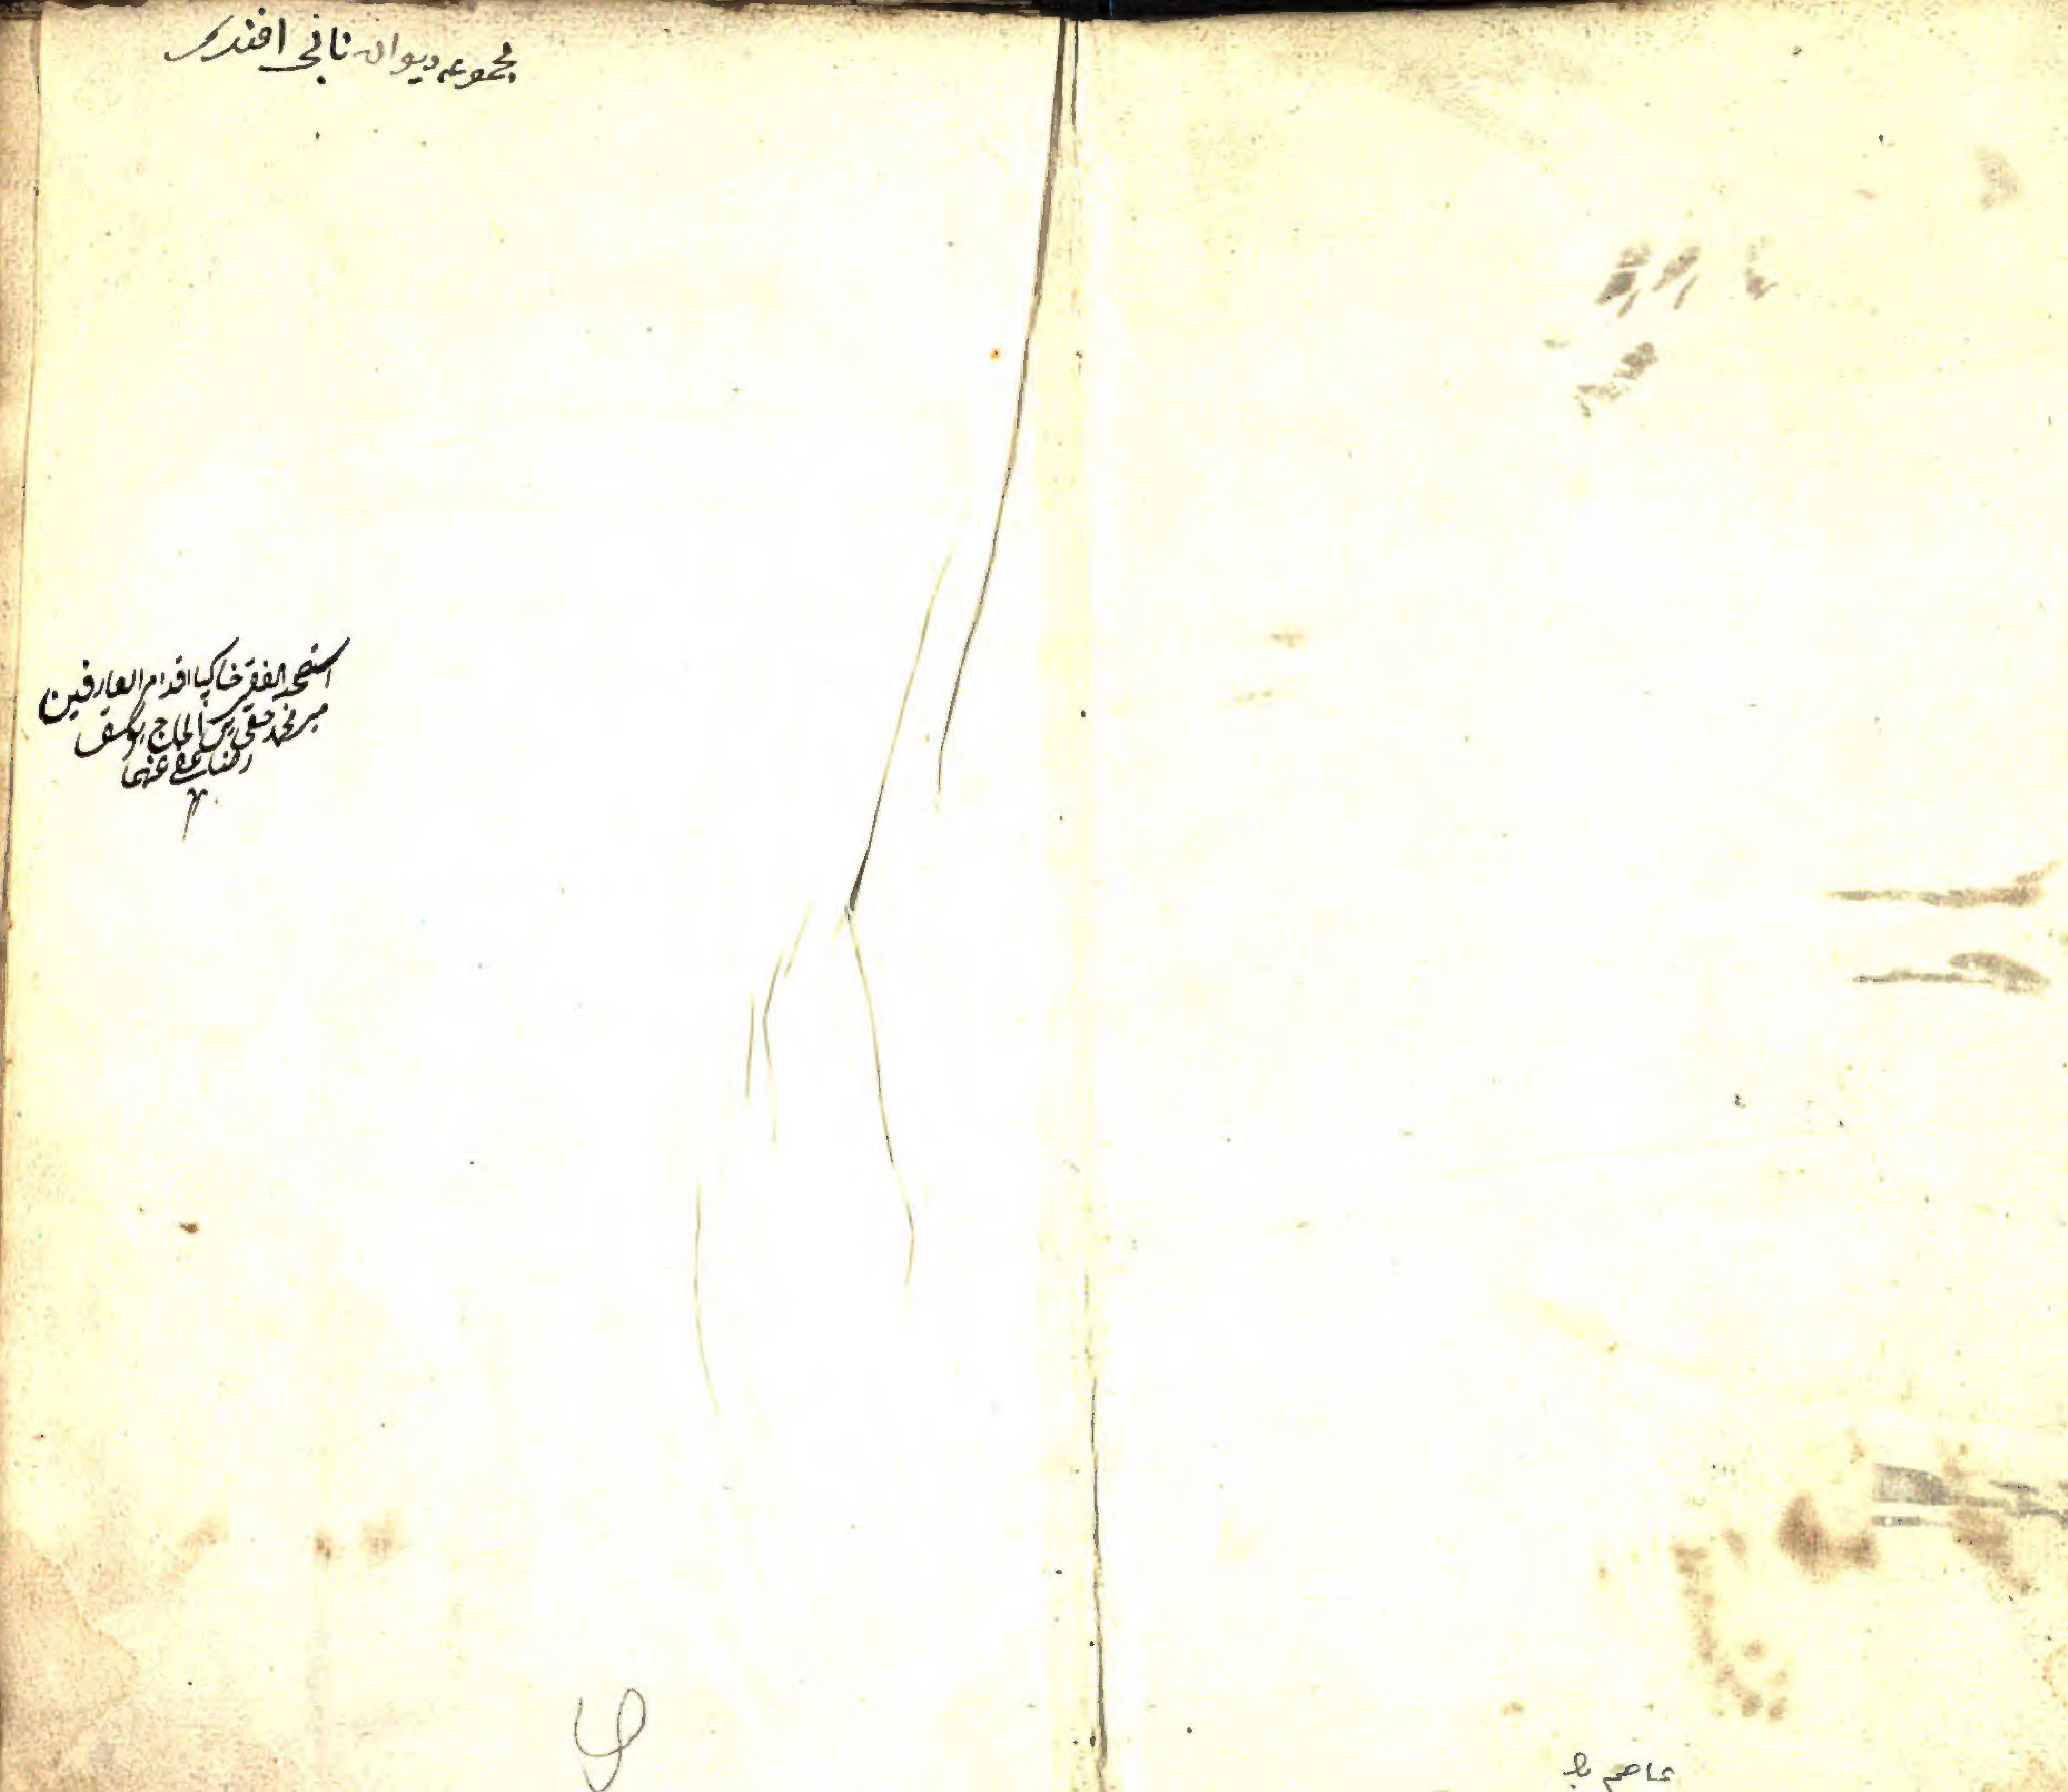 مجموعه ديوان نابى افندى
استصحبه الفقير خاكپاى اقدام العارفين
مير محمد حقى بن الحاج يوسف
عفى عنهما
عاصم بك